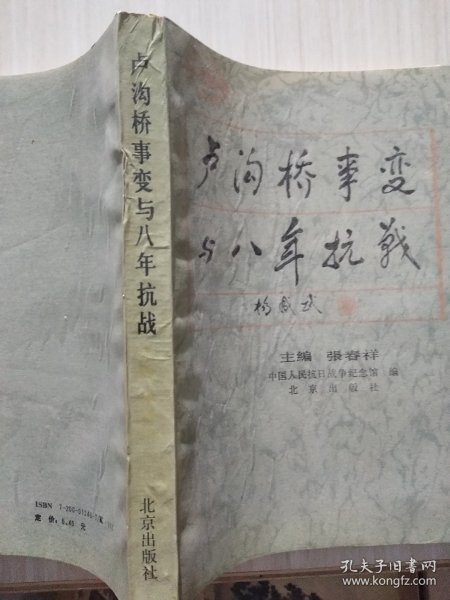 卢沟桥事变
与八年抗战
杨成武
主编 張春祥
中国人民抗日战争纪念馆 编
北京出版社
卢沟桥事变与八年抗战
北京出版社
定价: 5.45 元
孔夫子旧书网
www.kongfz.com